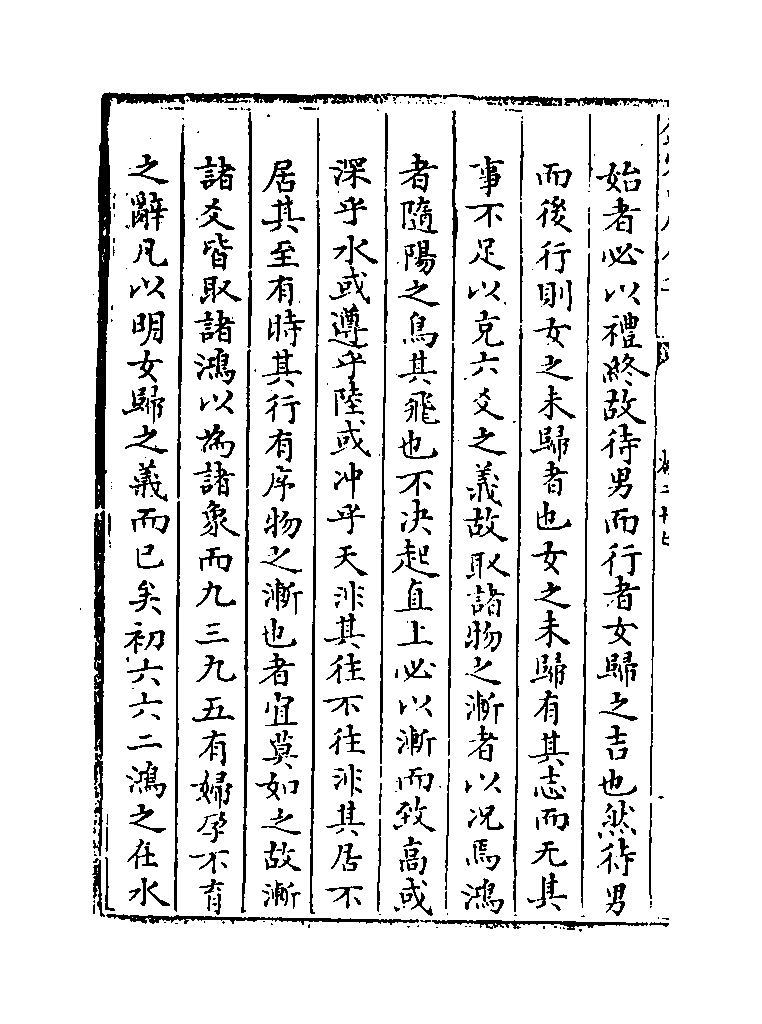 始者必以禮終故待男而行者女歸之吉也然待男
而後行則女之未歸者也女之未歸有其志而无其
事不足以克六爻之義故取諸物之漸者以况焉鴻
者隨陽之鳥其飛也不决起直上必以漸而致高或
深乎水或遵乎陸或冲乎天非其往不往非其居不
居其至有時其行有序物之漸也者宜莫如之故漸
諸爻皆取諸鴻以為諸象而九三九五有婦孕不育
之辭凡以明女歸之義而已矣初六六二鴻之在水